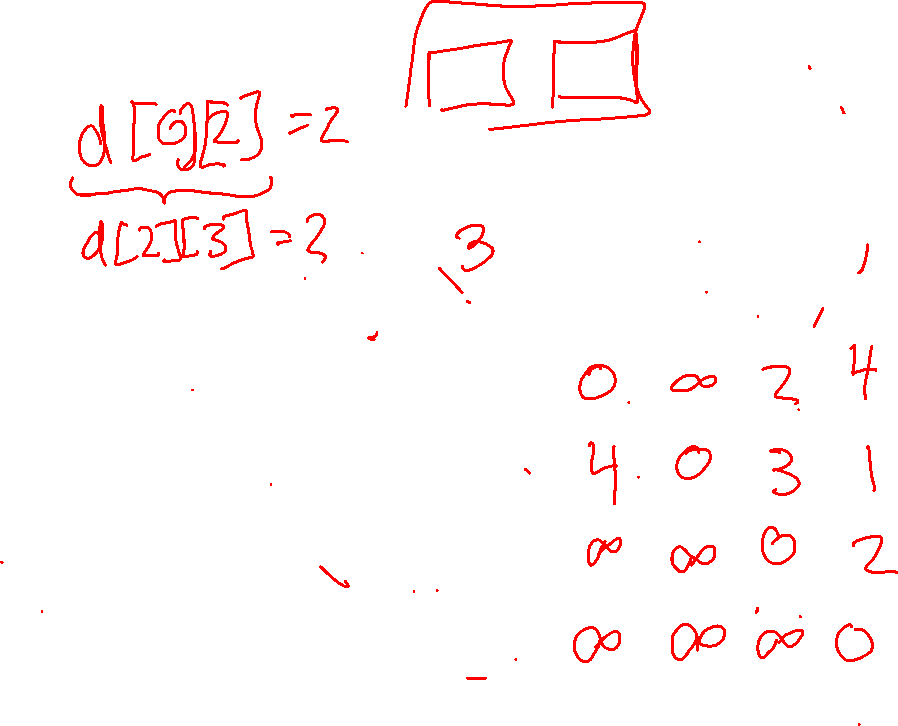 d[0][2] = 2
d[2][3] = 2
3
0 ∞ 2 4
4 0 3 1
∞ ∞ 0 2
∞ ∞ ∞ 0